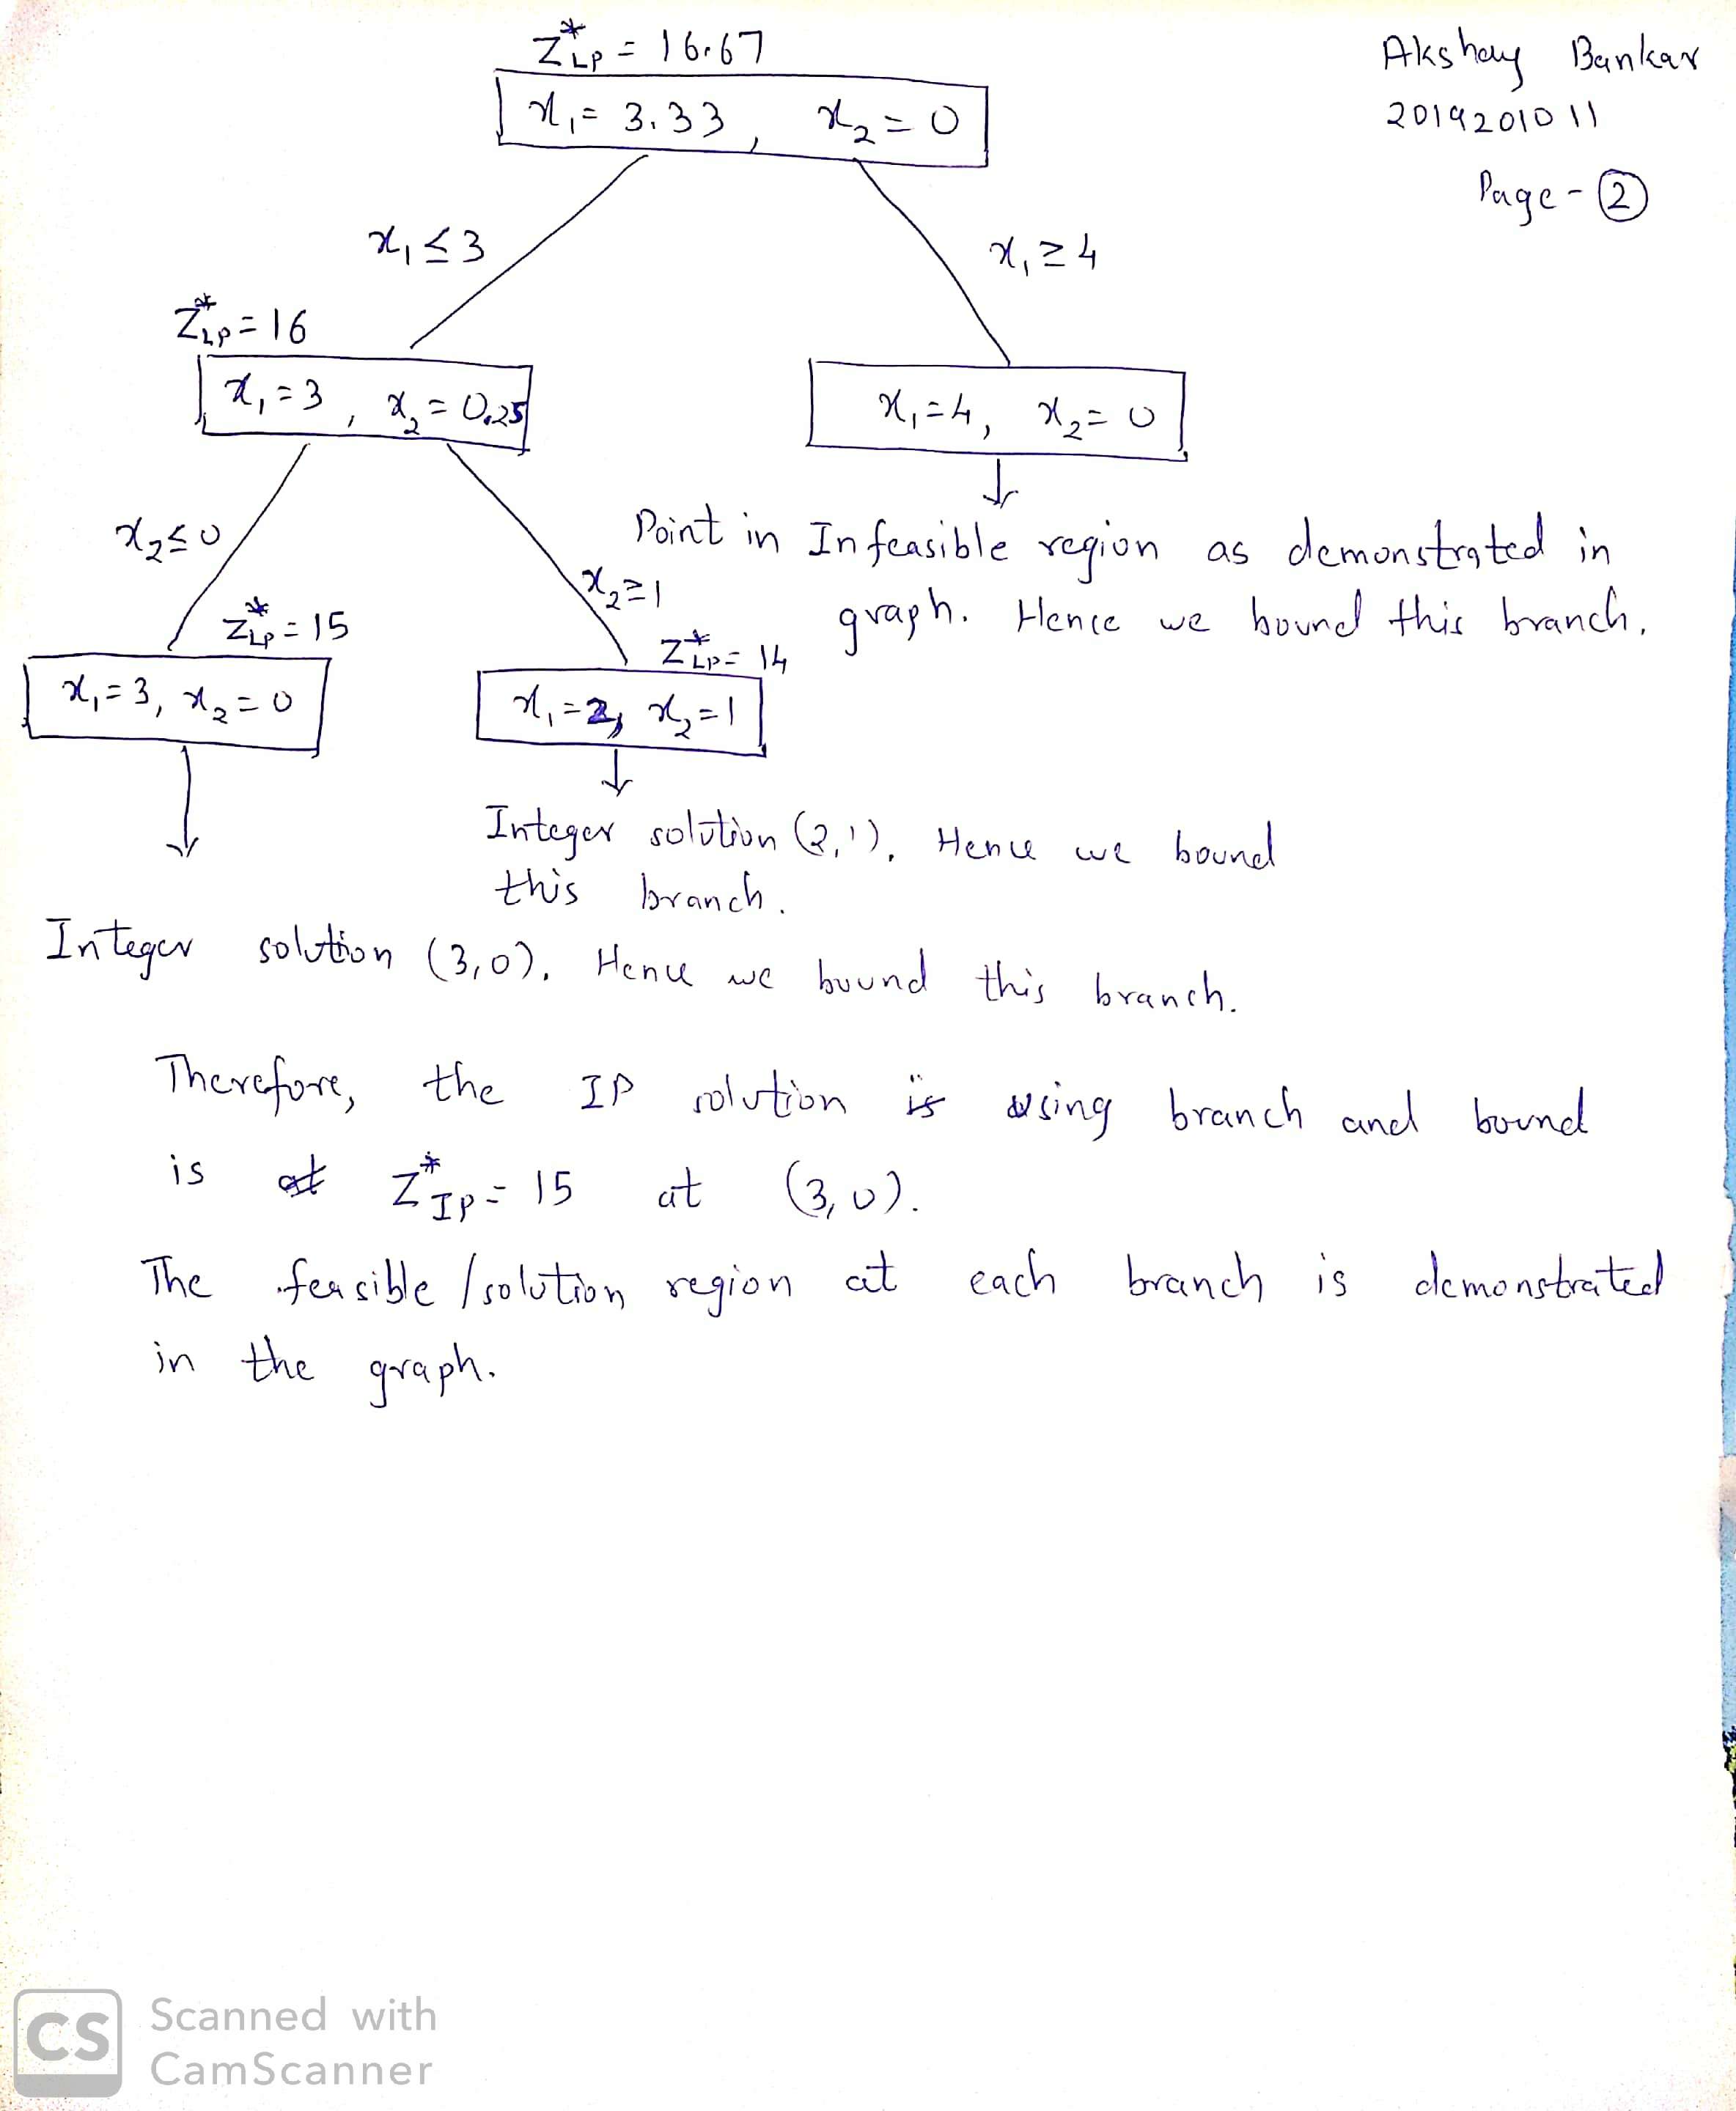 Z*LP = 16.67
x₁ = 3.33 , x₂ = 0
Akshay Bankar
2019201011
Page - ②
x₁ ≤ 3
x₁ ≥ 4
Z*LP = 16
x₁ = 3 , x₂ = 0.25
x₁ = 4, x₂ = 0
x₂ ≤ 0
x₂ ≥ 1
Point in Infeasible region as demonstrated in
graph. Hence we bound this branch.
Z*LP = 15
x₁ = 3, x₂ = 0
Z*LP = 14
x₁ = 2, x₂ = 1
Integer solution (2,1). Hence we bound
this branch.
Integer solution (3,0). Hence we bound this branch.
Therefore, the IP solution is using branch and bound
is at Z*IP = 15 at (3,0).
The feasible/solution region at each branch is demonstrated
in the graph.
CS
Scanned with
CamScanner